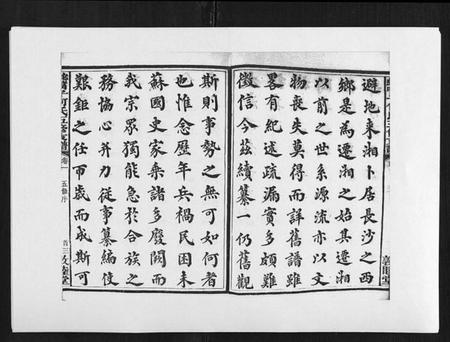 避地来湘卜居長沙之西
鄉是為遷湘之始其遷湘
以前之世系源流亦以文
物喪失莫得而詳舊譜雖
畧有紀述疏漏實多頗難
徵信今茲續纂一仍舊觀
斯則事勢之無可如何者
也惟念歷年兵禍民困未
蘇國史家乘諸多廢闕而
我宗眾獨能急於合族之
務協心并力從事纂編使
艱鉅之任帀歲而成斯可
卷一
五修序
首三
敦睦堂